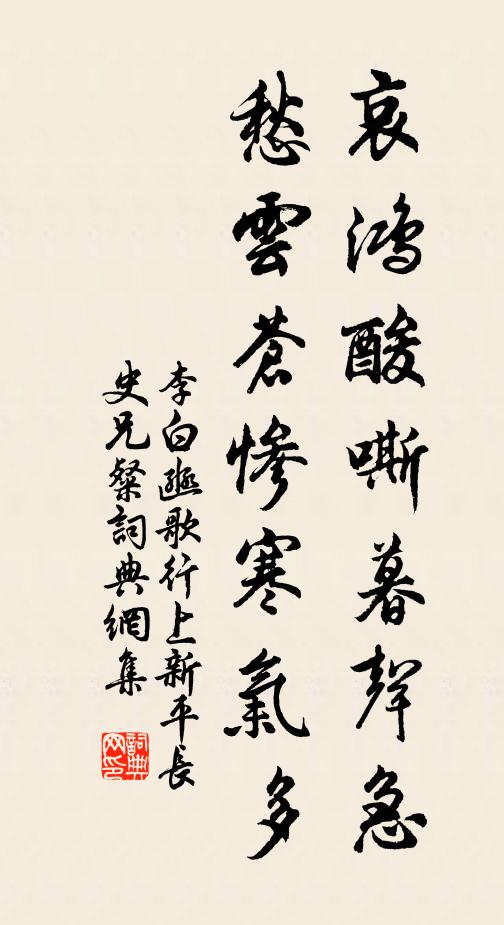 哀鴻酸嘶暮聲急
愁雲蒼慘寒氣多
李白豳歌行上新平長
史兄粲詞典網集
詞典
网印